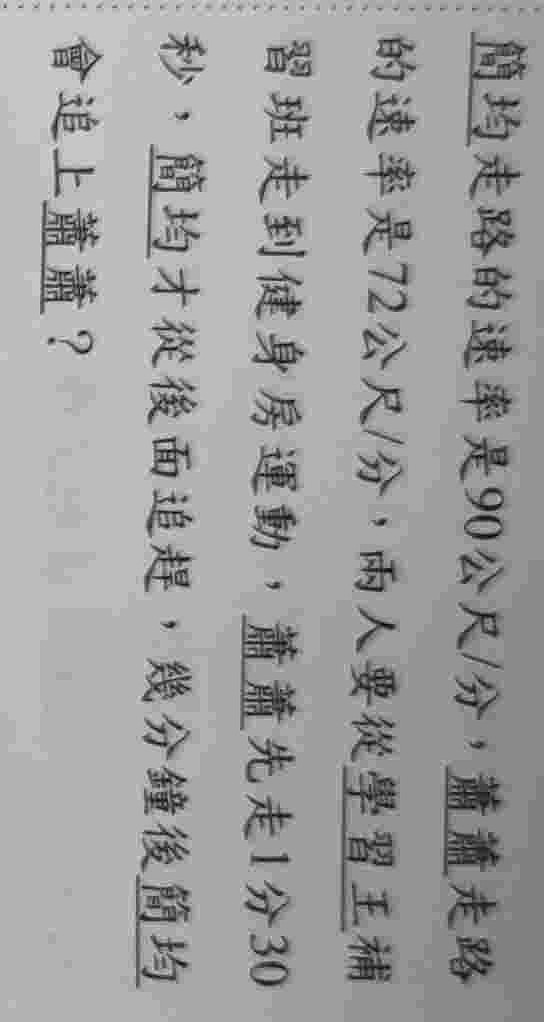 簡均走路的速率是90公尺/分，蕭蕭走路
的速率是72公尺/分，兩人要從學習王補
習班走到健身房運動，蕭蕭先走1分30
秒，簡均才從後面追趕，幾分鐘後簡均
會追上蕭蕭？